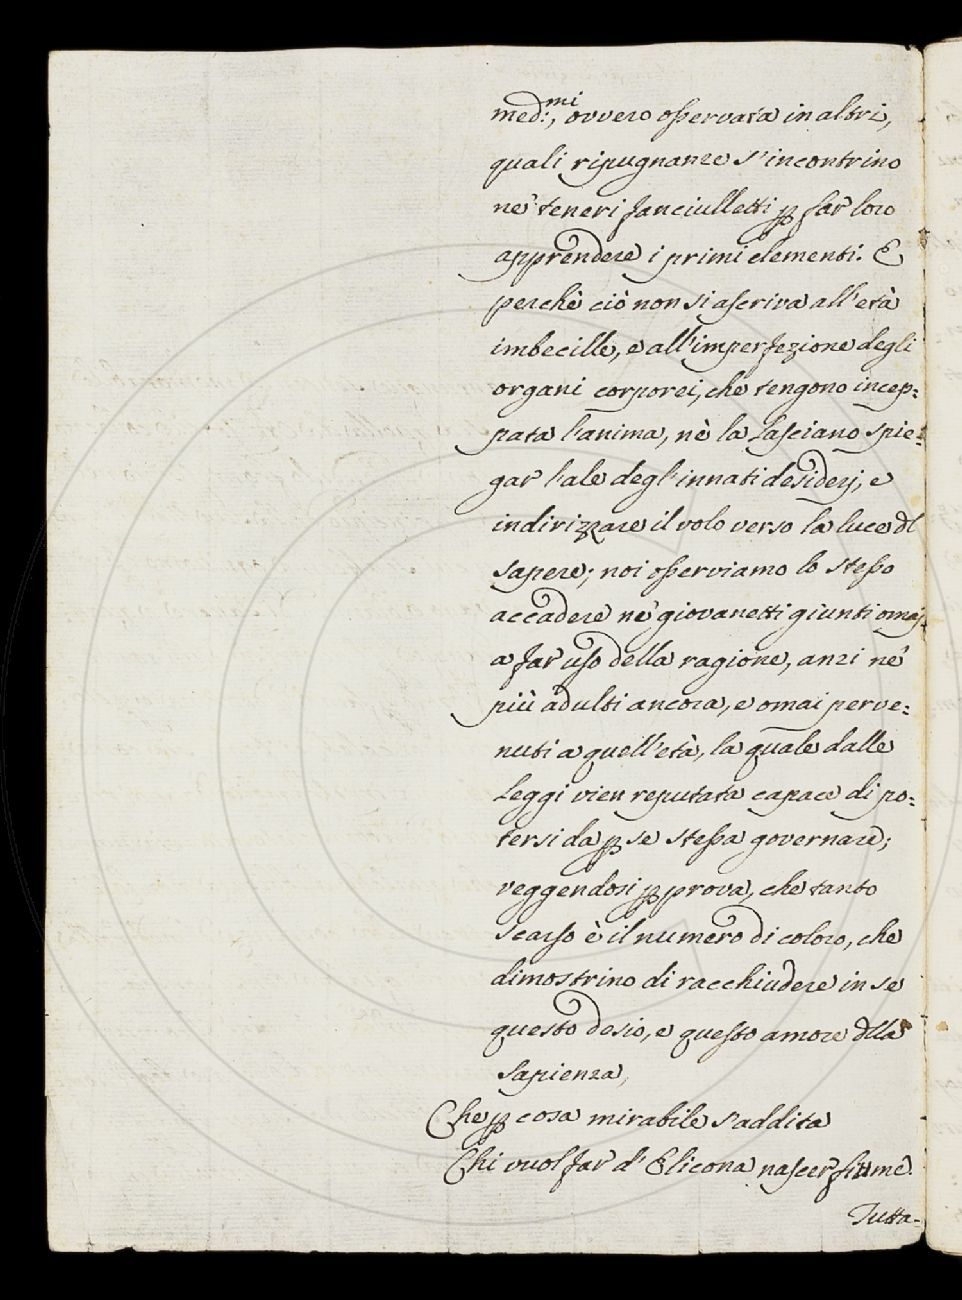 med:mi, ovvero osservata in altri,
quali ripugnanze s'incontrino
ne' teneri fanciulletti p far loro
apprendere i primi elementi. E
perchè ciò non si ascriva all'età
imbecille, e all'imperfezione degli
organi corporei, che tengono incep=
pata l'anima, nè la lasciano spie=
gar l'ale degl'innati desiderj, e
indirizzare il volo verso la luce dl
sapere; noi osserviamo lo stesso
accadere ne' giovanetti giunti omaj
a far uso della ragione, anzi ne'
più adulti ancora, e omai perve=
nuti a quell'età, la quale dalle
Leggi vien reputata capace di po=
tersi da p se stessa governare;
veggendosi p prova, che tanto
scarso è il numero di coloro, che
dimostrino di racchiudere in se
questo desio, e questo amore dlla
sapienza,
Che p cosa mirabile s'addita
Chi vuol far d'Elicona nascer fiume.
Tutta-